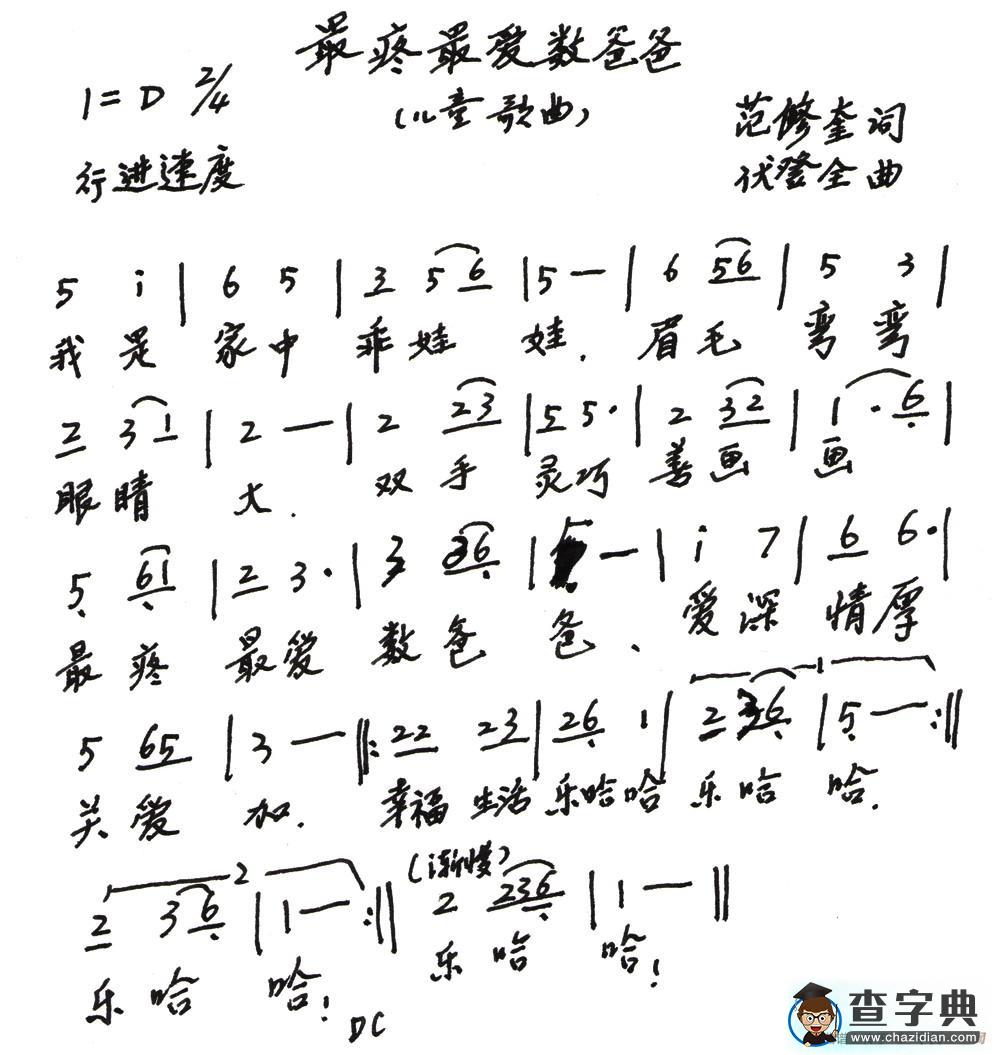 最疼最爱数爸爸
(儿童歌曲)
1=D 2/4
行进速度
范修奎词
伏登全曲
5 i | 6 5 | 3 5 6 | 5 — | 6 56 | 5 3 |
我是 家中 乖娃 娃. 眉毛 弯弯
2 3 1 | 2 — | 2 23 | 5 5· | 2 32 | 1 · 6 |
眼睛 大. 双手 灵巧 善画 画
5 61 | 2 3· | 3 36 | — | i 7 | 6 6· |
最疼 最爱 数爸 爸、 爱深 情厚
5 65 | 3 — ‖: 22 23 | 26 1 | 2 36 | 5 — :‖
关爱 加. 幸福 生活 乐哈哈 乐哈 哈.
1
2
(渐慢)
2 3 6 | 1 — :‖ 2 236 | 1 — ‖
乐哈 哈! 乐哈 哈!
DC
查字典
www.chazidian.com